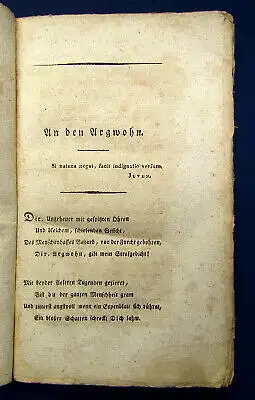 An den Argwohn.
Si natura negat, facit indignatio versum.
JUVEN.
Dir, Ungeheuer mit gespitzten Ohren
Und bleichem, schielenden Gesicht,
Des Menschenhasses Bastard, von der Furcht gebohren,
Dir, Argwohn, gilt mein Strafgedicht!
Mit beyder Aeltern Tugenden gezieret,
Bist du der ganzen Menschheit gram
Und zitterst angstvoll wenn ein Espenblatt sich rühret,
Ein bloßer Schatten schreckt Dich lahm.